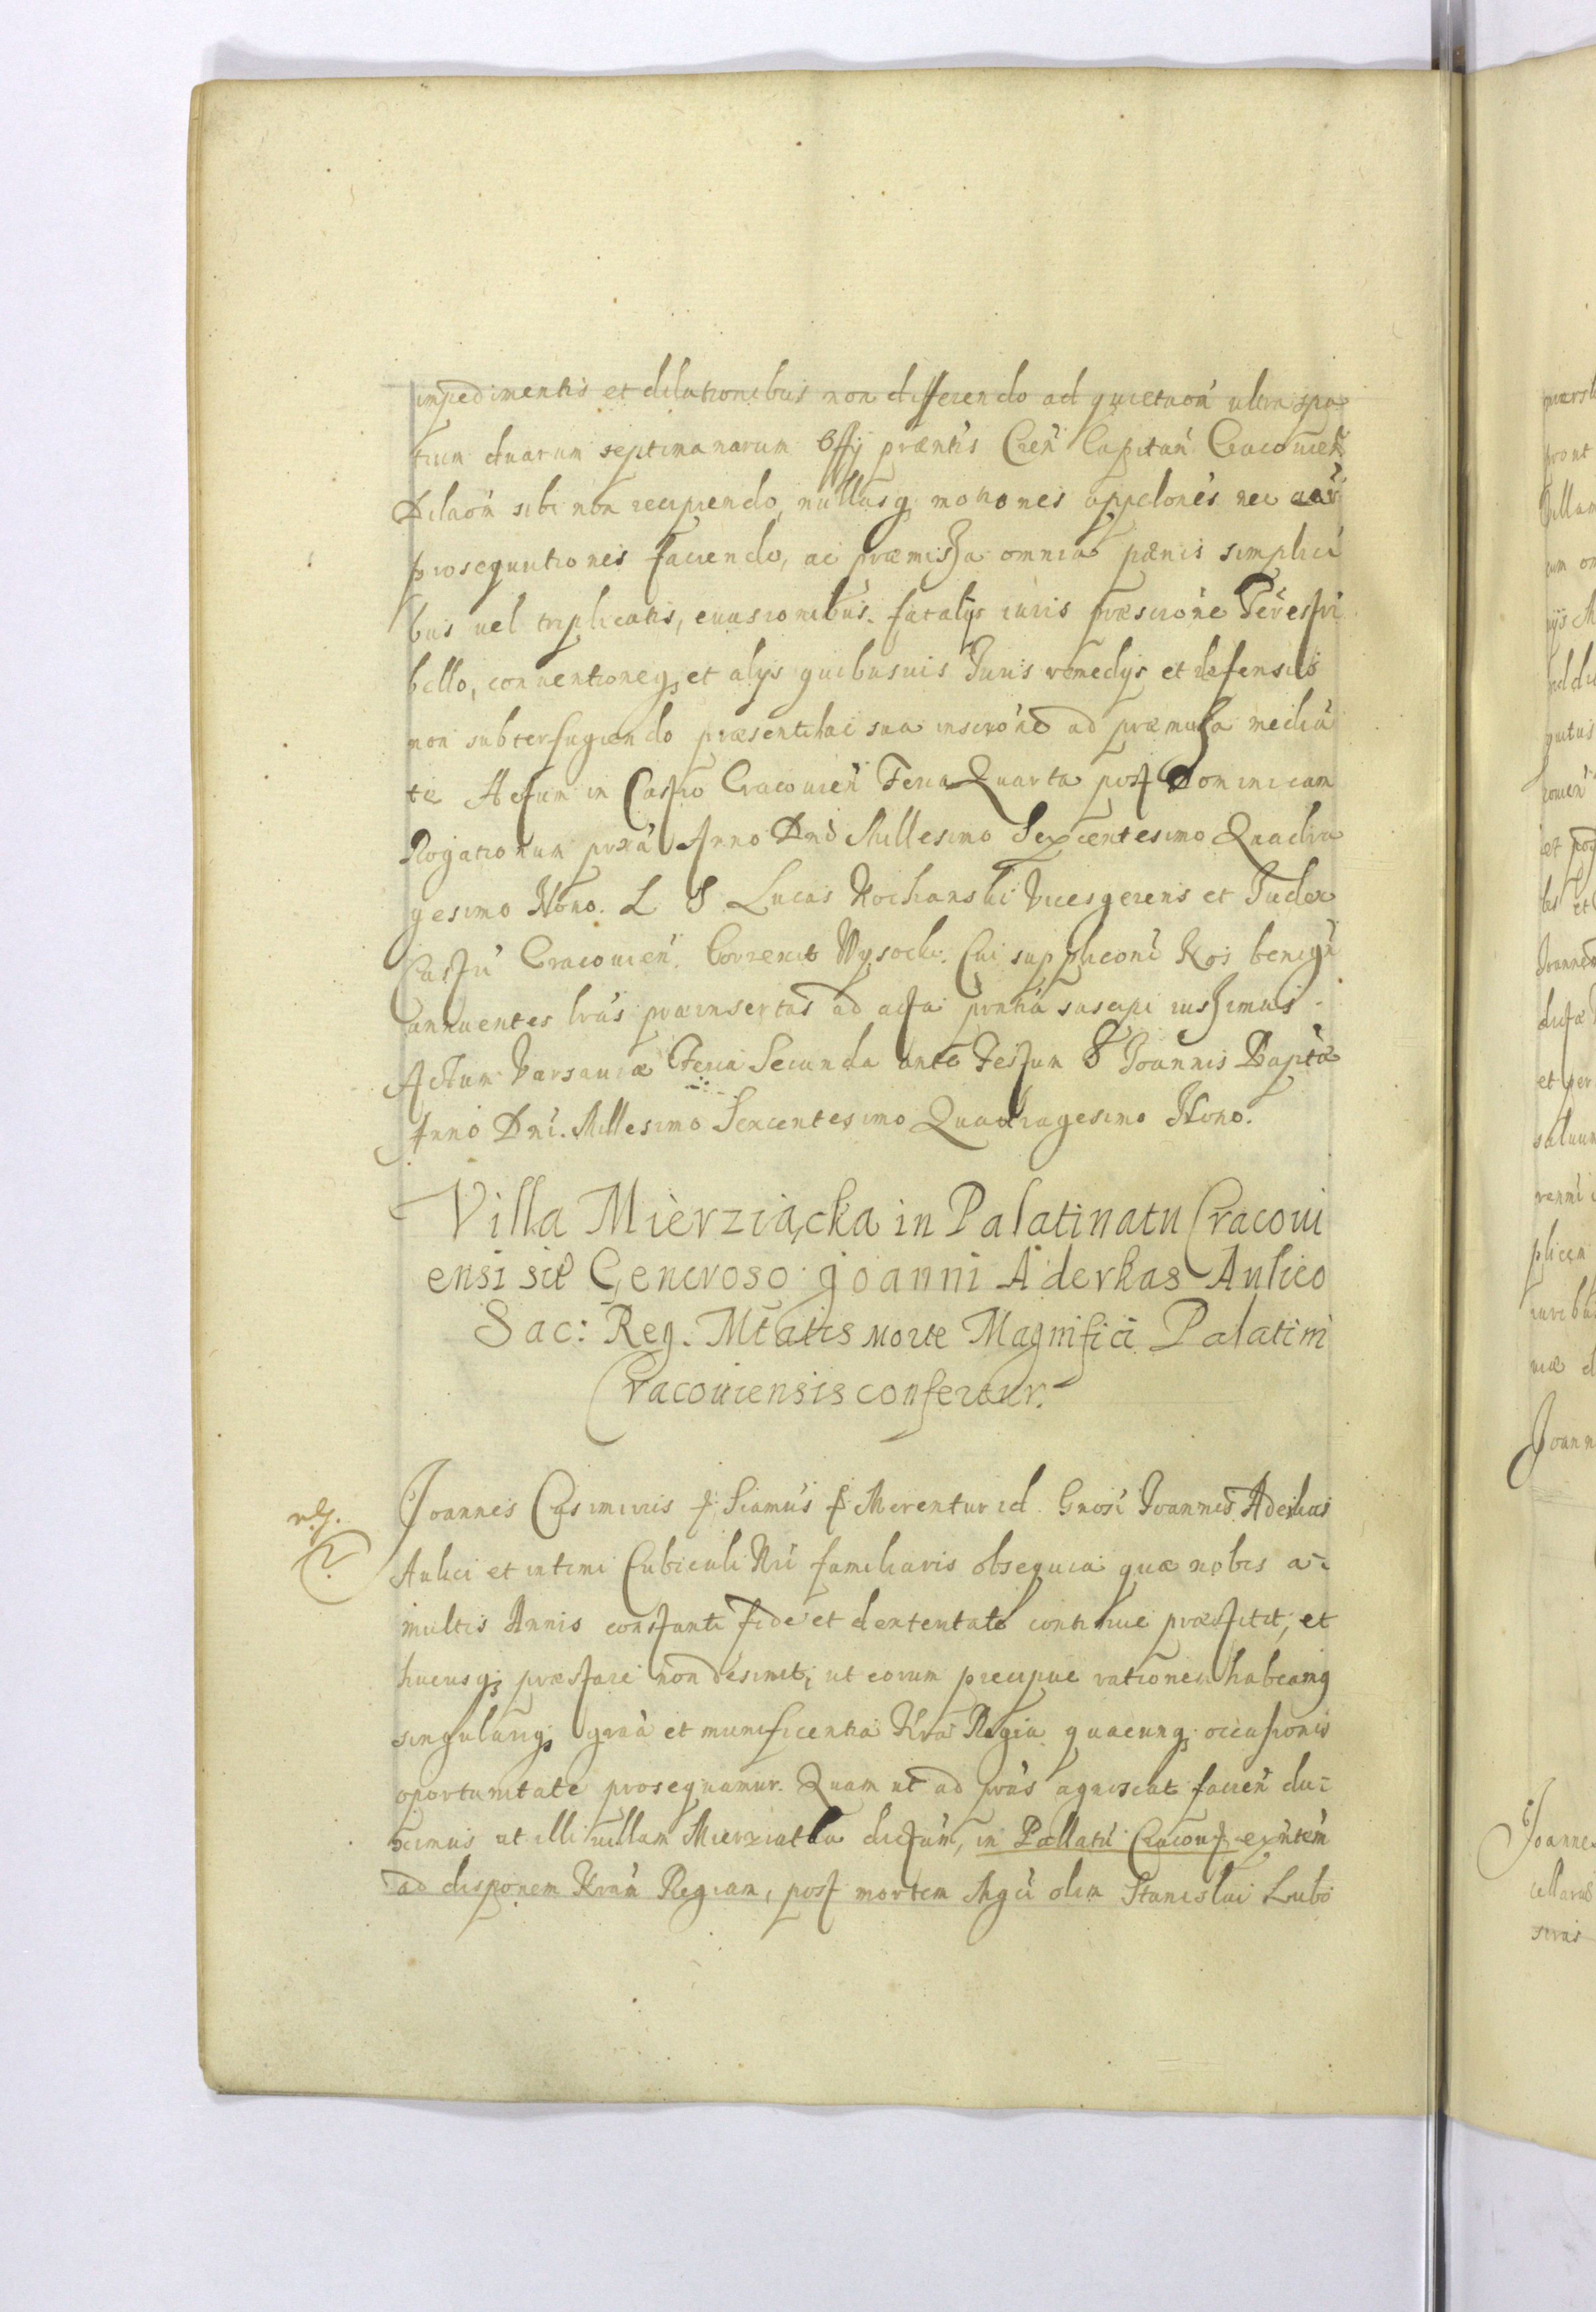 impedimentis et dilationibus non differendo ad quietaoń ultra spa
tium duarum septimanarum Offÿ præntis Cren̄ Capitan̄ Cracouien̄
Dilaoń sibi non recipiendo, nullasq motiones appelones nec
prosequutiones faciendo, ac præmissa omnia pænis simplici
bus uel triplicatis, euasionibus. fatalÿs iuris præscrione Terrestri
bello, conuentioneq et alÿs quibusuis Iuris remedÿs et defensis
non subterfugiendo præsenti hac sua inscrone ad præmissa media
te Actum in Castro Cracouien̄ Feria Quarta post Dominicam
Rogationum proxa Anno Dni Millesimo Sexcentesimo Quadra
gesimo Nono. L S Lucas Kochanski Vicesgerens et Iudex
Castrn̄ Cracouien̄. Correxit Wysocki. Cui suppliconi Nos benign̄
annuentes lras præinsertas ad acta pntia suscipi iussimus
Actum Varsauiæ Feria Secunda ante Festum S Ioannis Baptæ
Anno Dni. Millesimo Sexcentesimo Quadragesimo Nono.
Villa Mierziącka in Palatinatu Cracoui
ensi sit Generoso Joanni Aderkas Aulico
Sac: Reg. Mtatis Morte Magnifici Palatini
Cracouiensis confertur.
Joannes Casimirus f. Siamus f Merentur id Gnosi Joannis Aderkas
Aulici et intimi Cubiculi Nri familiaris obsequia quæ nobis a
multis Annis constanti fide et dexteritate continue præstitit, et
hucusq præstare non desinit, ut eorum precipue rationem habeamq
singulariq graa et munificentia Nra Regia quacunq occasionis
oportunitate prosequamur. Quam ut ad prus agnoscat facien̄ du
ximus ut illi uillam Mierziatka dictam, in Pallatu Cracou exntem
ad disponem Nram Regiam, post mortem Mgci olim Stanislai Lubo